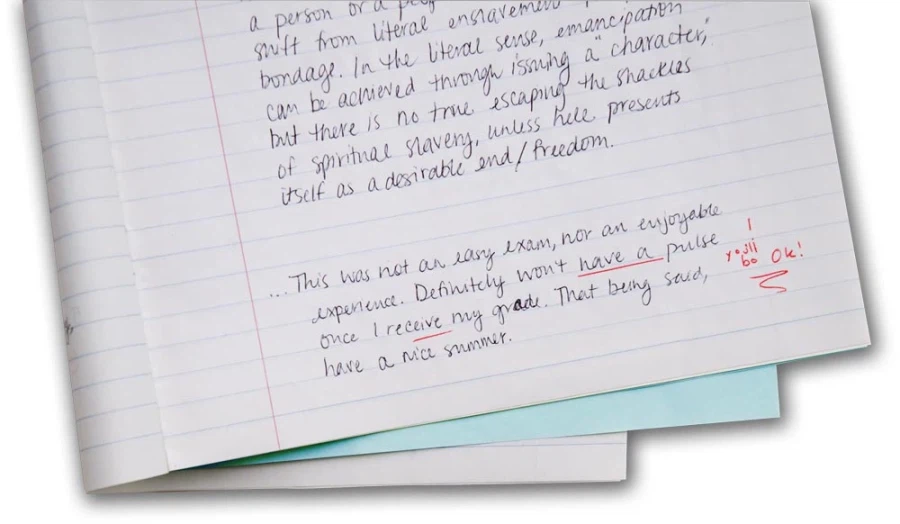 a person or a
shift from literal enslavement
bondage. In the literal sense, emancipation
can be achieved through issuing a "character,"
but there is no true escaping the shackles
of spiritual slavery, unless hell presents
itself as a desirable end/freedom.
... This was not an easy exam, nor an enjoyable
experience. Definitely won't have a pulse
once I receive my grade. That being said,
have a nice summer.
Ok!